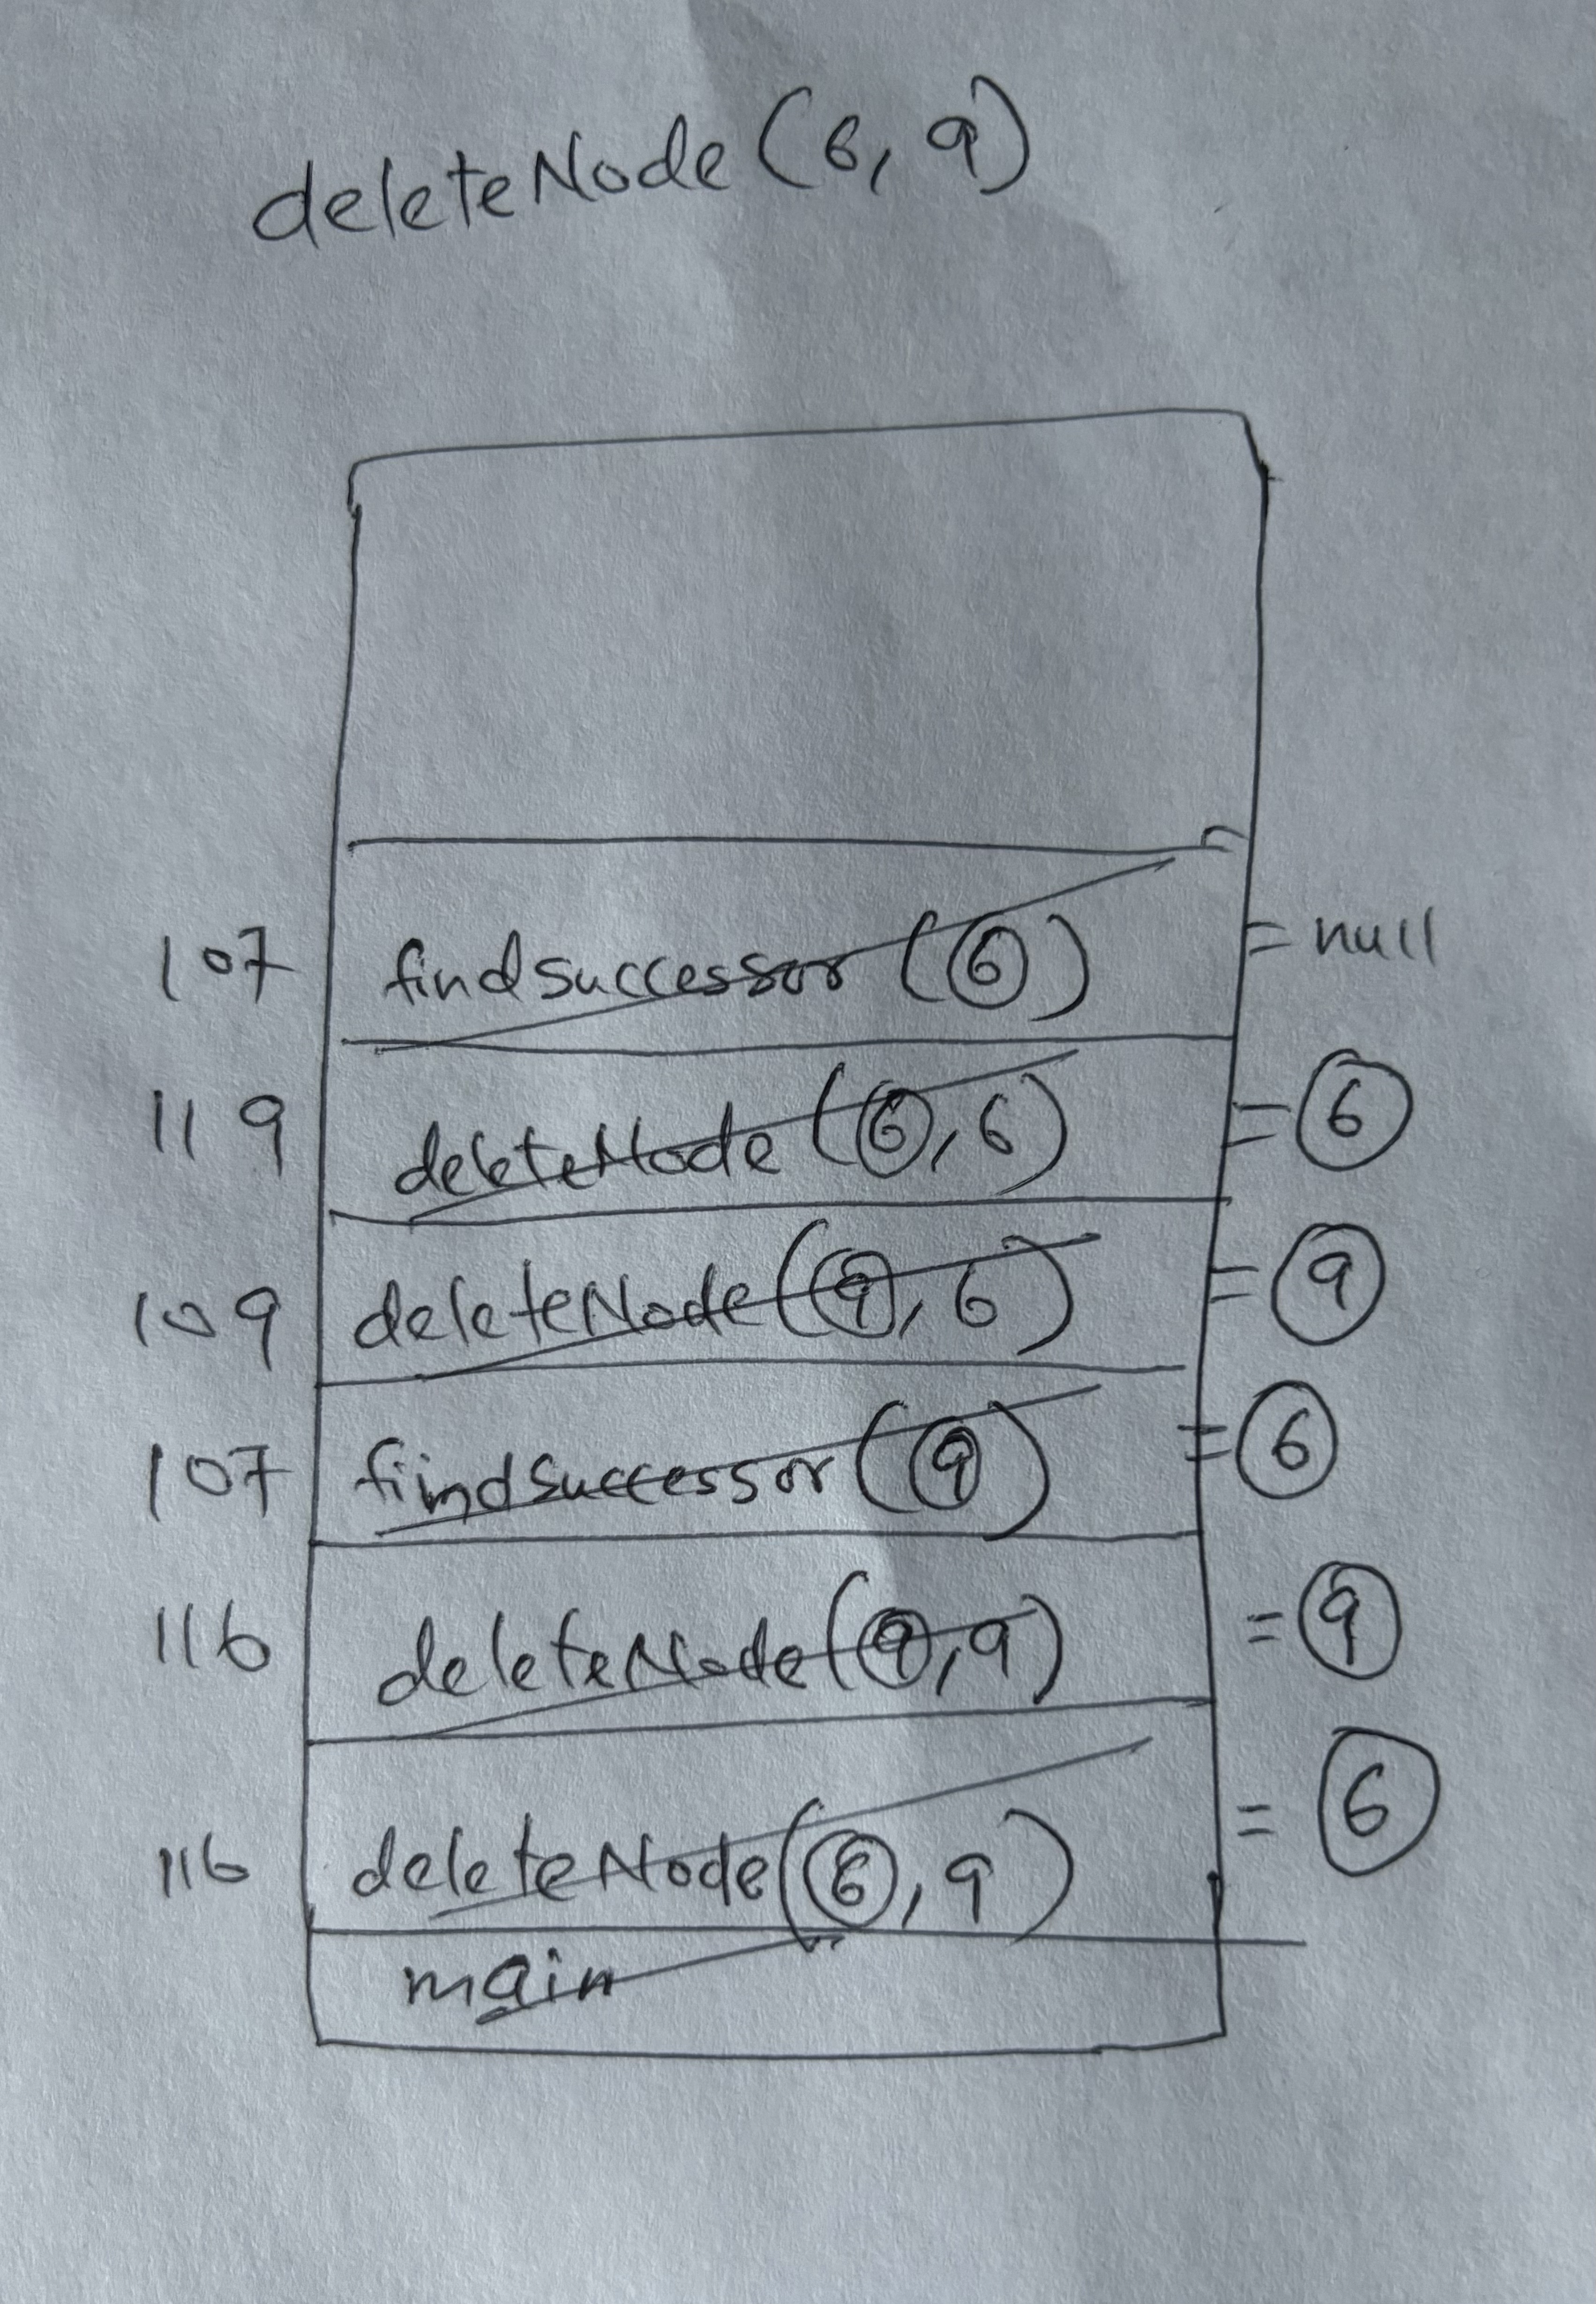 deleteNode(6, 9)
107 findSuccessor (6) = null
119 deleteNode (6, 6) = 6
109 deleteNode (9, 6) = 9
107 findSuccessor (9) = 6
116 deleteNode (9, 9) = 9
116 deleteNode (6, 9) = 6
main